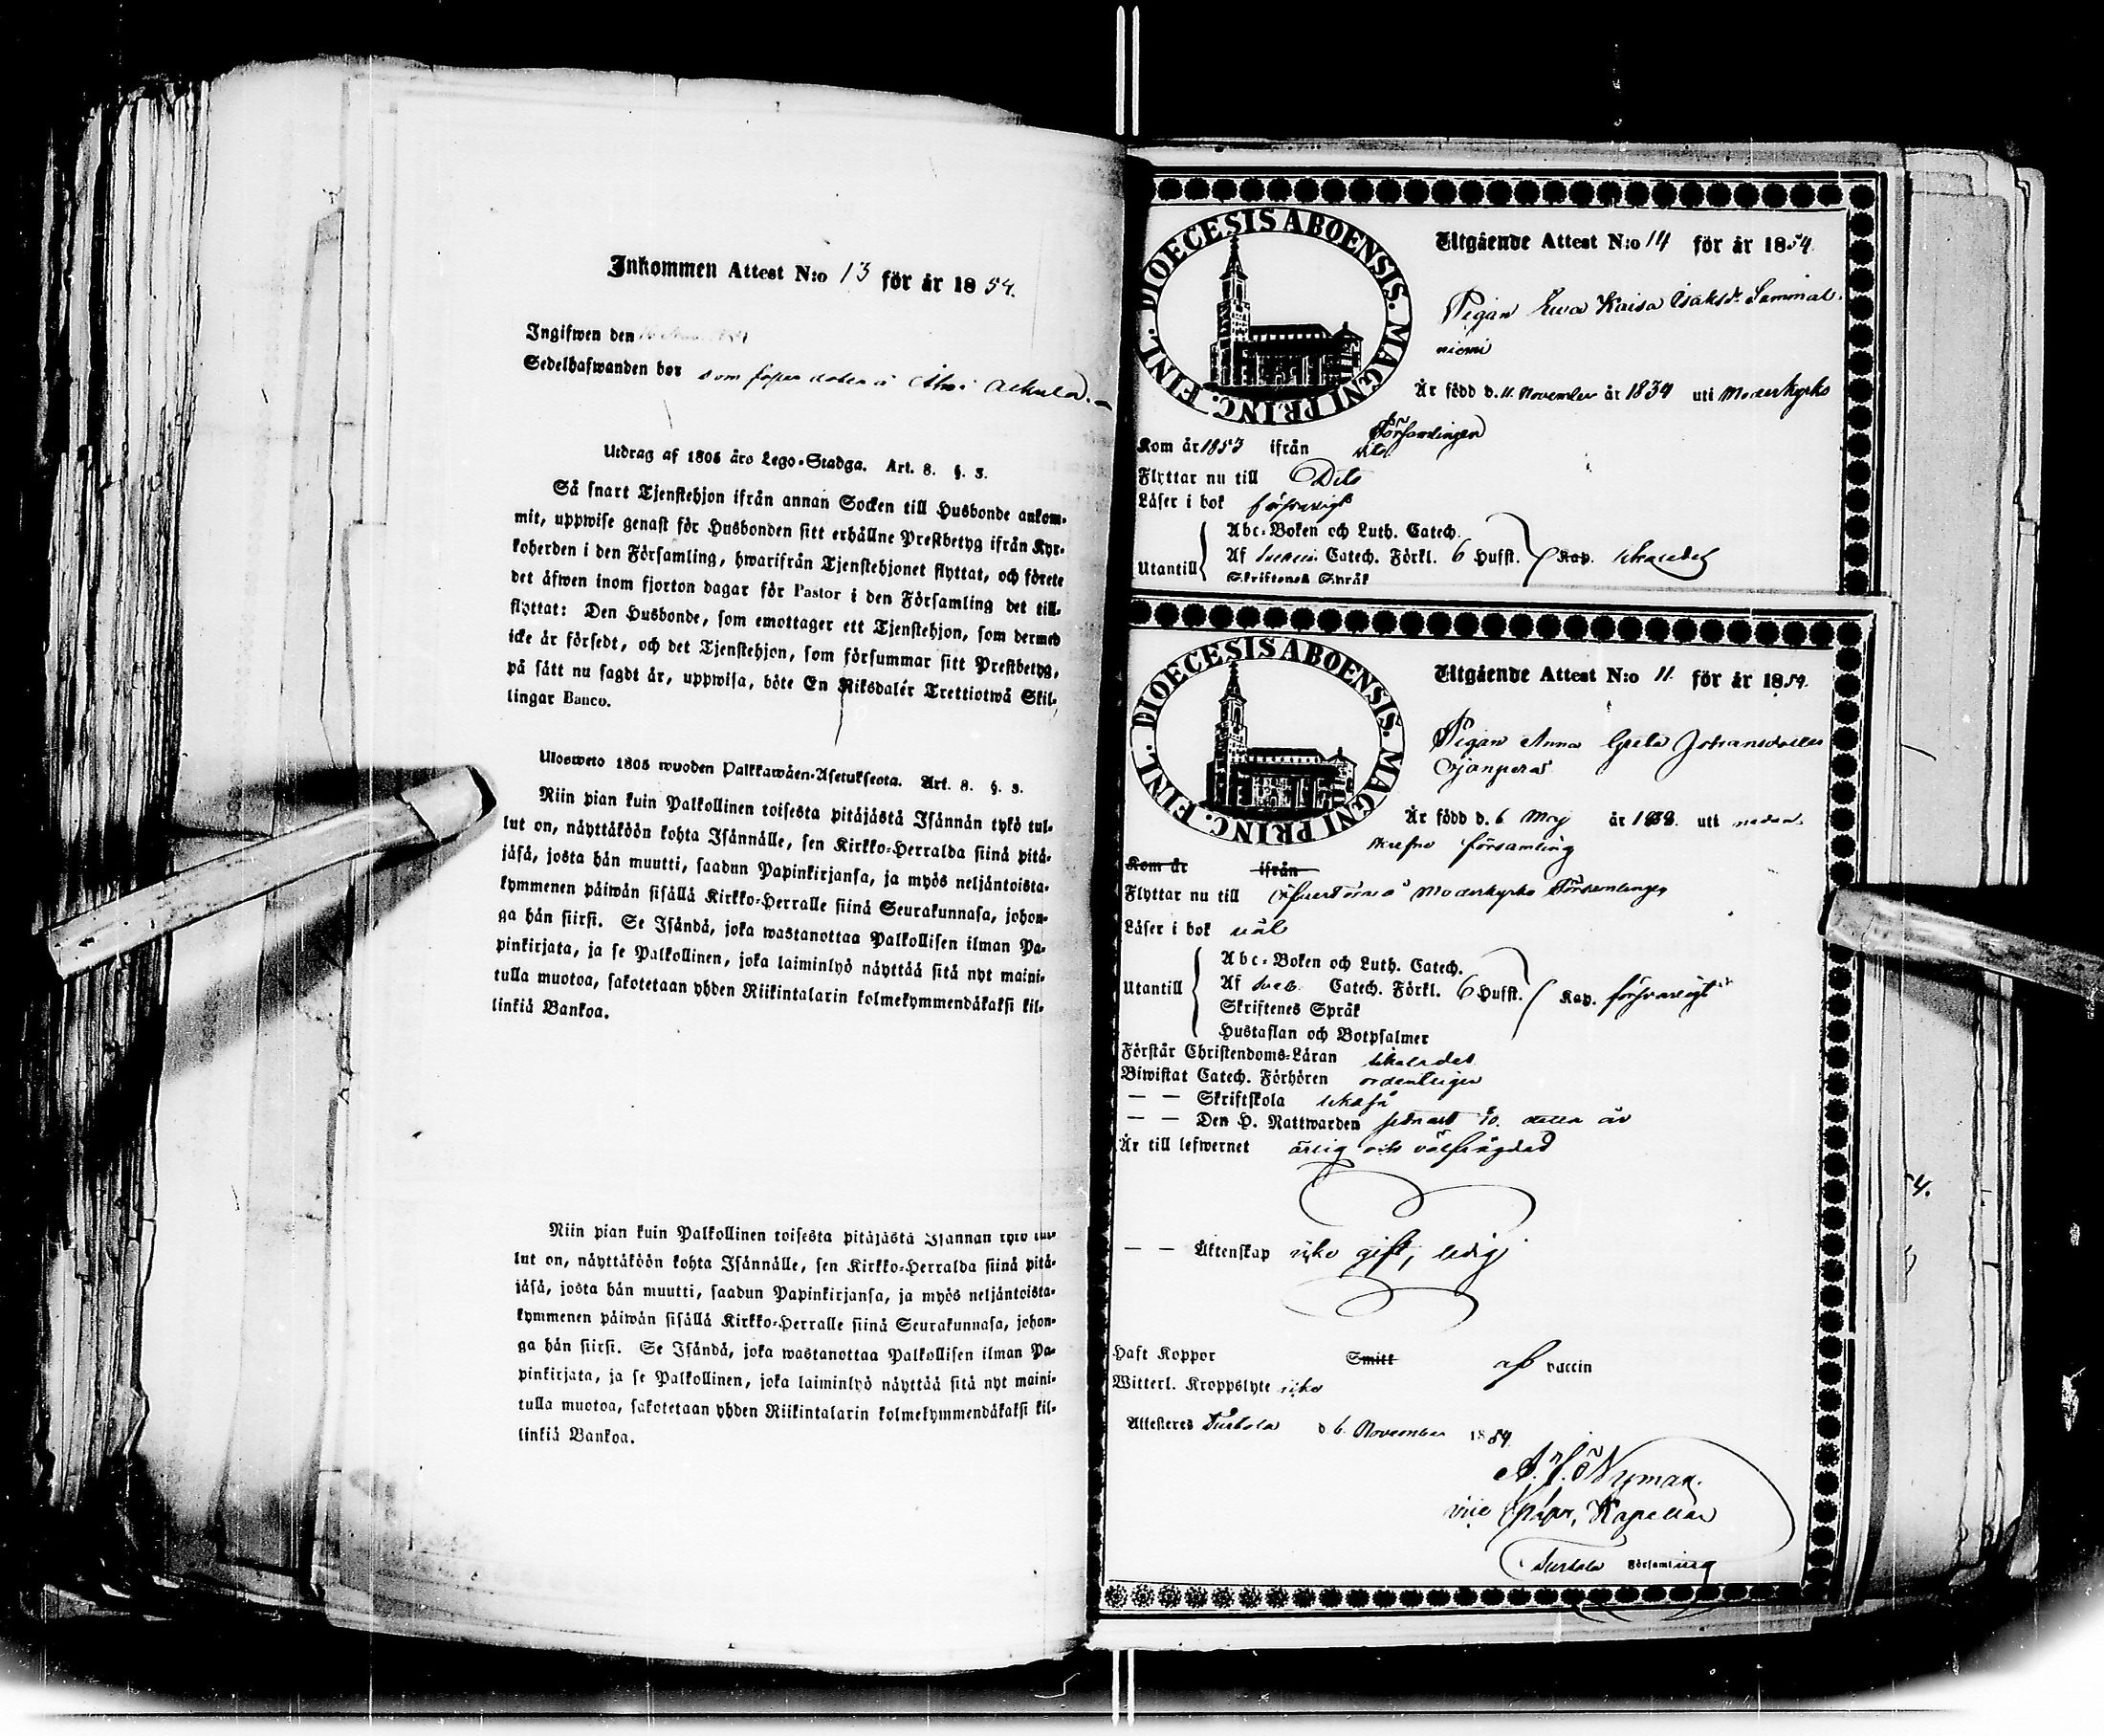 Inkommen Attest N:o 13 för år 1854.
Ingifwen den
Sedelhafwanden bor som
Utdrag af 1805 års Lego-Stadga. Art. 8. §. 3.
Så snart Tjenstehjon ifrån annan Socken till Husbonde ankom-
mit, uppwise genast för Husbonden sitt erhållne Prestbetyg ifrån Kyr-
koherden i den Församling, hwarifrån Tjenstehjonet flyttat, och förete
det äfwen inom fjorton dagar för Pastor i den Församling det till-
flyttat: Den Husbonde, som emottager ett Tjenstehjon, som dermed
icke är försedt, och det Tjenstehjon, som försummar sitt Prestbetyg,
på sätt nu sagdt är, uppwisa, böte En Riksdaler Trettiotwå Skil-
lingar Banco.
Ulosweto 1805 wuoden Palkkawäen-Asetuksesta. Art. 8. §. 3.
Niin pian kuin Palkollinen toisesta pitäjästä Isännän tykö tul-
lut on, näyttäköön kohta Isännälle, sen Kirkko-Herralda siinä pitä-
jäsä, josta hän muutti, saadun Papinkirjansa, ja myös neljäntoista-
kymmenen päiwän sisällä Kirkko-Herralle siinä Seurakunnasa, johon-
ga hän siirsi. Se Isändä, joka wastanottaa Palkollisen ilman Pa-
pinkirjata, ja se Palkollinen, joka laiminlyö näyttää sitä nyt maini-
tulla muotoa, sakotetaan yhden Riikintalarin kolmekymmendäkaksi kil-
linkiä Bankoa.
Niin pian kuin Palkollinen toisesta pitäjästä Isännän tykö tul-
lut on, näyttäköön kohta Isännälle, sen Kirkko-Herralda siinä pitä-
jäsä, josta hän muutti, saadun Papinkirjansa, ja myös neljäntoista-
kymmenen päiwän sisällä Kirkko-Herralle siinä Seurakunnasa, johon-
ga hän siirsi. Se Isändä, joka wastanottaa Palkollisen ilman Pa-
pinkirjata, ja se Palkollinen, joka laiminlyö näyttää sitä nyt maini-
tulla muotoa, sakotetaan yhden Riikintalarin kolmekymmendäkaksi kil-
linkiä Bankoa.
FINL. DIOECESIS ABOENSIS. MAGNI PRINC.
Utgående Attest N:o 14 för år 1854.
Pigan Ewa Kaisa Isaksdr Sammal-
niemi
Är född d. 11. November år 1834 uti Moderkyrko
Församlingen
Kom år 1853 ifrån dito
Flyttar nu till Dito
Läser i bok försvarligt
Abc-Boken och Luth. Catech.
Utantill Af Catech. Förkl. 6 Hufst. Kap.
Skriftenes Språk
FINL. DIOECESIS ABOENSIS. MAGNI PRINC.
Utgående Attest N:o 11. för år 1854.
Pigan Anna Greta Johansdotter
Är född d. 6 Maj år 1838. uti nedan-
skrefne församling
Kom år ifrån
Flyttar nu till Öfvertorneå Moderkyrko Församlingen
Läser i bok väl
Abc-Boken och Luth. Catech.
Utantill Af Catech. Förkl. 6 Hufst. Kap. försvarligt
Skriftenes Språk
Hustaflan och Botpsalmer
Förstår Christendoms-Läran likaledes
Biwistat Catech. Förhören ordentligen
— — Skriftskola likaså
— — Den H. Nattwarden senast detta år
Är till lefwernet ärlig och välfrägdad
— — Äktenskap icke gift, ledig
Haft Koppor Smitt af vaccin
Witterl. Kroppslyte icke
Attesteres Turtola d. 6. November 1854.
Nyman.
vice Kapellan
Turtola Församling